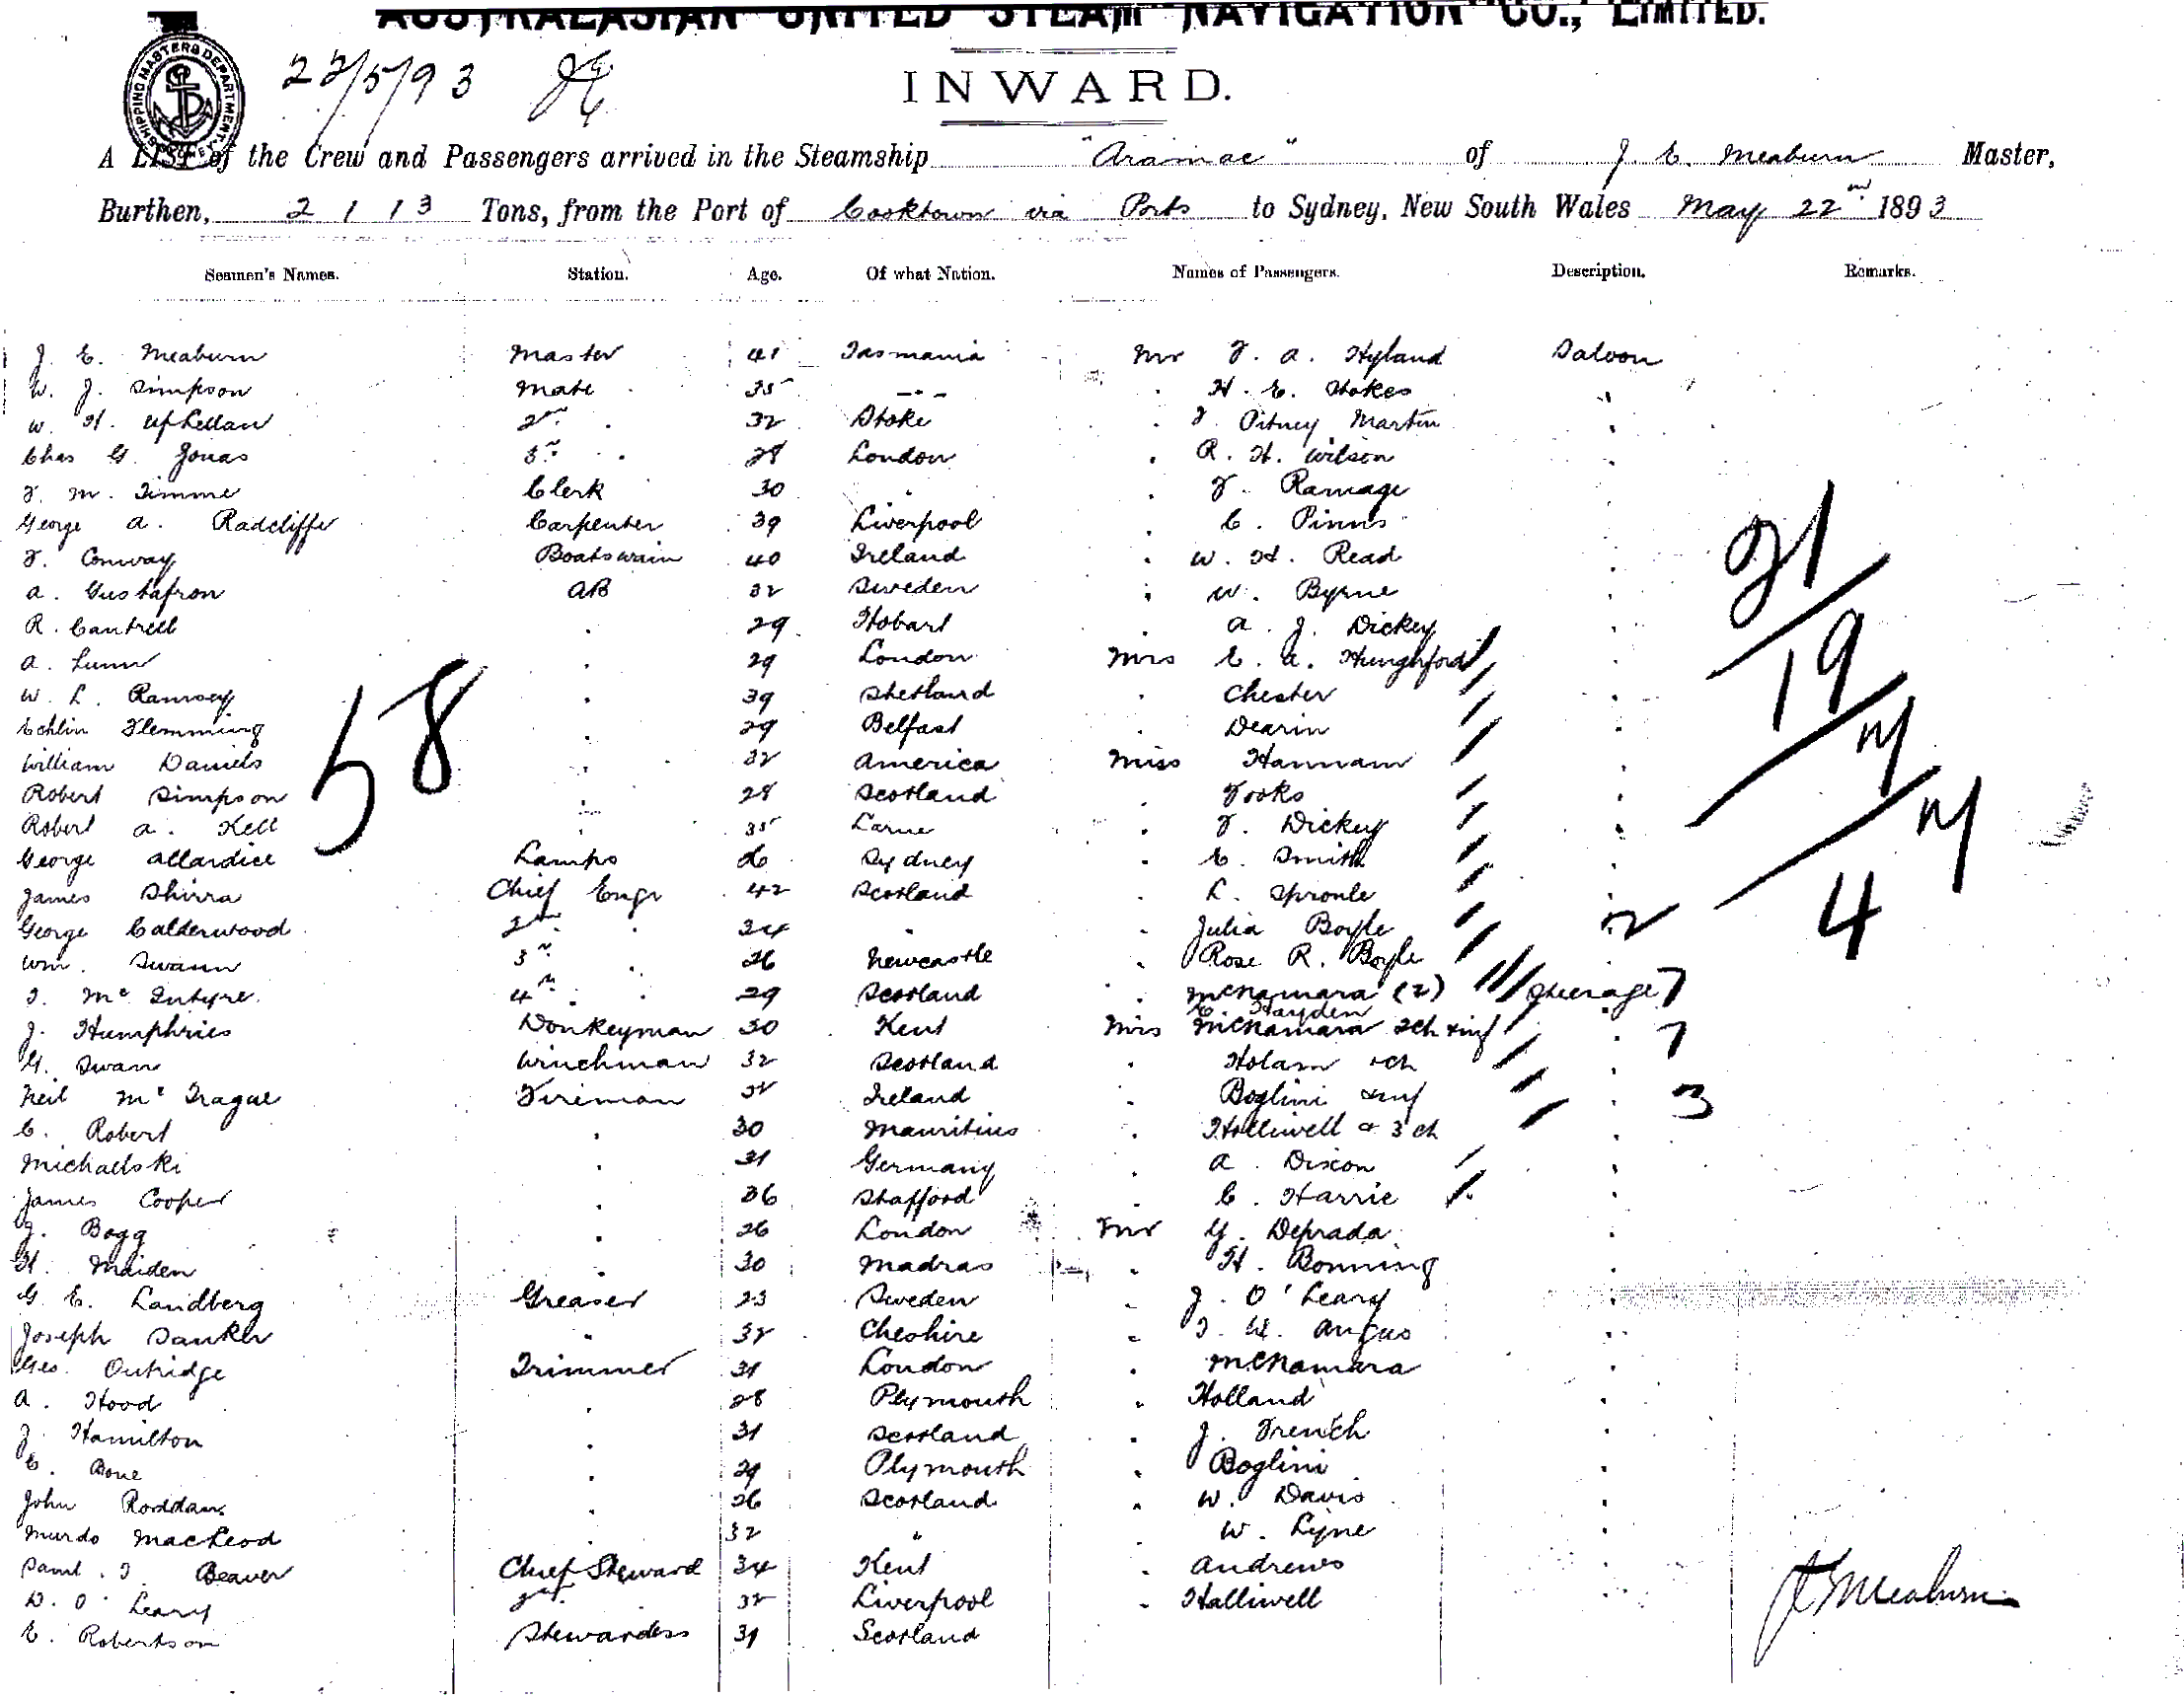 AUSTRALASIAN UNITED STEAM NAVIGATION CO., LIMITED.
SHIPPING MASTERS DEPARTMENT
22/5/93
INWARD.
A LIST of the Crew and Passengers arrived in the Steamship "Aramac" of J. E. Meaburn Master,
Burthen, 2113 Tons, from the Port of Cooktown via Ports to Sydney, New South Wales May 22nd 1893
Seamen's Names. Station. Age. Of what Nation. Names of Passengers. Description. Remarks.
J. E. Meaburn Master 41 Tasmania Mr F. A. Hyland Saloon
W. J. Simpson Mate 35 - - - " H. E. Stokes "
W. H. Upfellow 2nd " 32 Stoke " F. Pitney Martin "
Chas G. Jonas 3rd " 28 London " R. H. Wilson "
F. M. Timme Clerk 30 " " F. Ramage "
George A. Radcliffe Carpenter 39 Liverpool " C. Pinns "
F. Conway Boatswain 40 Ireland " W. H. Read "
A. Gustafson AB 32 Sweden " W. Byrne "
R. Cantrell " 29 Hobart " A. J. Dickey "
A. Lunn " 29 London Mrs E. A. Hungerford "
W. L. Ramsey " 39 Shetland " Chester "
Echlin Flemming " 29 Belfast " Dearin "
William Daniels " 32 America Miss Hannam "
Robert Simpson " 28 Scotland " Fooks "
Robert A. Kell " 35 Larne " F. Dickey "
George Allardice Lamps do Sydney " E. Smith "
James Shirra Chief Engr 42 Scotland " L. Sproule "
George Calderwood 2nd " 34 " " Julia Boyle " 2
Wm. Swann 3rd " 26 Newcastle " Rose R. Boyle
T. McIntyre 4th " 29 Scotland " McNamara (2) Steerage 7
E. Hayden
J. Humphries Donkeyman 30 Kent Mrs McNamara 2ch & inf " 7
G. Swan Winchman 32 Scotland " Holam & ch "
Neil McTrague Fireman 32 Ireland " Boglini & inf " 3
C. Robert " 30 Mauritius " Halliwell & 3 ch "
Michaelski " 31 Germany " A. Dixon "
James Cooper " 36 Stafford " C. Harrie "
J. Bogg " 26 London Mr G. Deprada "
H. Maiden " 30 Madras " H. Bonning "
G. E. Landberg Greaser 23 Sweden " J. O'Leary "
Joseph Danker " 32 Cheshire " T. W. Angus "
Geo. Outridge Trimmer 31 London " McNamara "
A. Hood " 28 Plymouth " Holland "
J. Hamilton " 31 Scotland " J. French "
C. Bone " 29 Plymouth " Boglini "
John Roddan " 26 Scotland " W. Davis "
Murdo MacLeod " 32 " " W. Lyne "
Saml. J. Beaver Chief Steward 34 Kent " Andrews "
D. O'Leary 2nd " 32 Liverpool " Halliwell "
E. Robertson Stewardess 31 Scotland
58
21/19/M/M/4
J E Meaburn